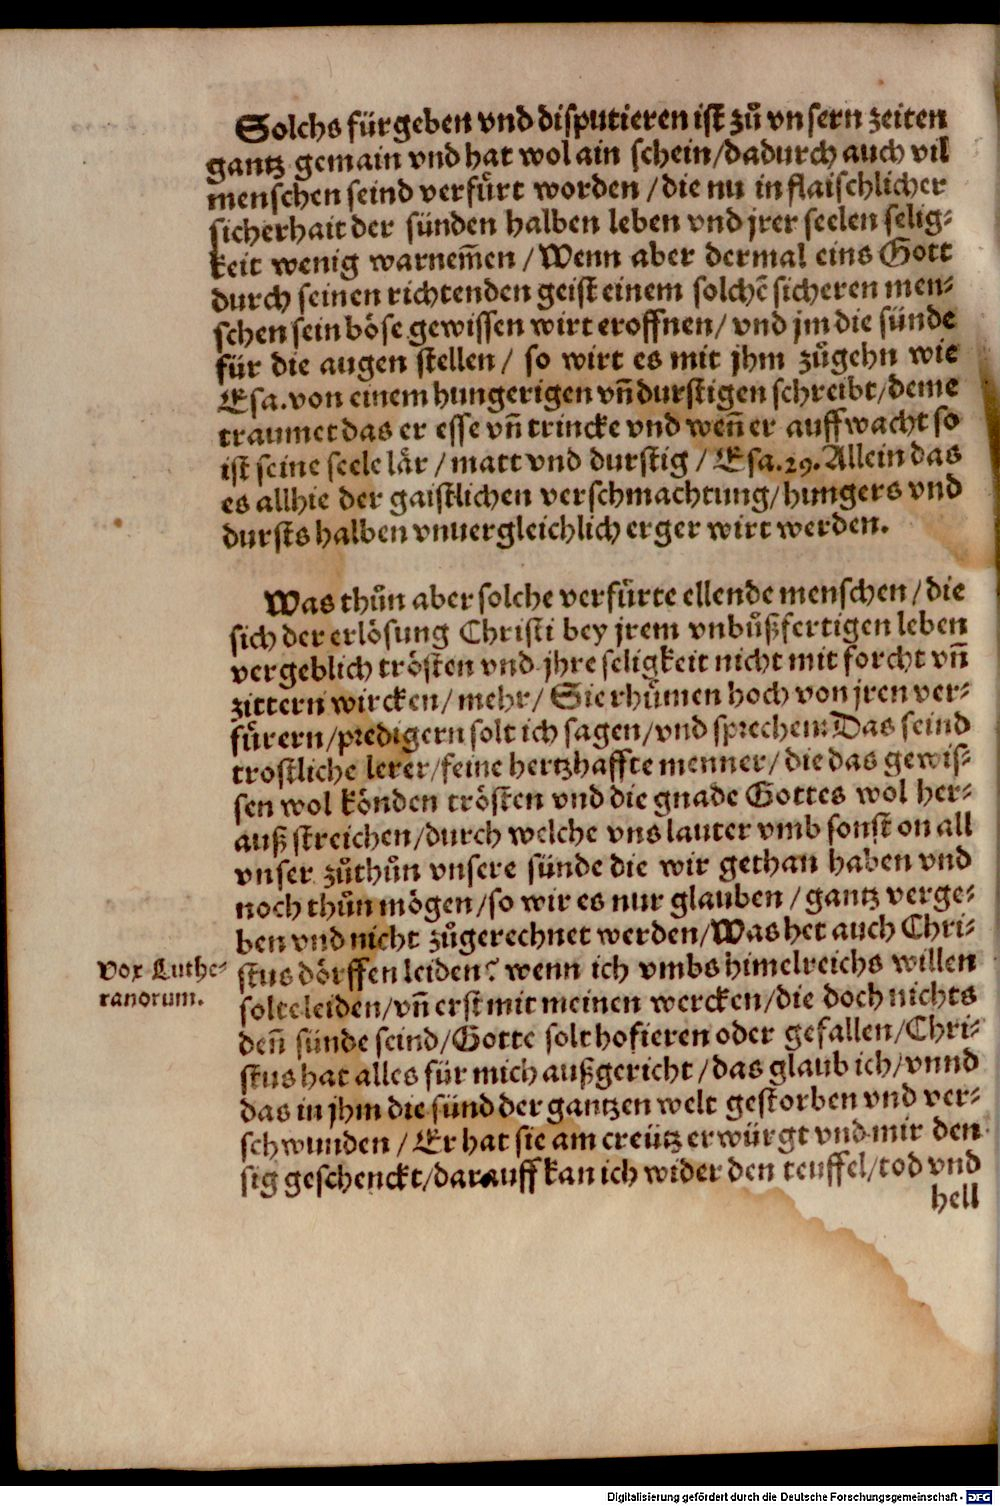 Solchs fürgeben vnd disputieren ist zů vnsern zeiten
gantz gemain vnd hat wol ain schein/dadurch auch vil
menschen seind verfürt worden/die nu in flaischlicher
sicherhait der sünden halben leben vnd jrer seelen selig-
keit wenig warnem̃en/Wenn aber dermal eins Gott
durch seinen richtenden geist einem solchẽ sicheren men-
schen sein böse gewissen wirt eroffnen/ vnd jm die sünde
für die augen stellen/ so wirt es mit jhm zůgehn wie
Esa.von einem hungerigen vñ durstigen schreibt/deme
traumet das er esse vñ trincke vnd weñ er auffwacht so
ist seine seele lär/matt vnd durstig/Esa.29.Allein das
es allhie der gaistlichen verschmachtung/hungers vnd
dursts halben vnuergleichlich erger wirt werden.
Was thůn aber solche verfürte ellende menschen/die
sich der erlösung Christi bey jrem vnbůßfertigen leben
vergeblich trösten vnd jhre seligkeit nicht mit forcht vñ
zittern wircken/mehr/Sie rhůmen hoch von jren ver-
fürern/predigern solt ich sagen/vnd sprechen: Das seind
trostliche lerer/feine hertzhaffte menner/die das gewis-
sen wol könden trösten vnd die gnade Gottes wol her-
auß streichen/durch welche vns lauter vmb sonst on all
vnser zůthůn vnsere sünde die wir gethan haben vnd
noch thůn mögen/so wir es nur glauben/gantz verge-
ben vnd nicht zůgerechnet werden/Was het auch Chri-
Vox Luthe-
ranorum.
stus dörffen leiden? wenn ich vmbs himelreichs willen
solte leiden/vñ erst mit meinen wercken/die doch nichts
deñ sünde seind/Gotte solt hofieren oder gefallen/Chri-
stus hat alles für mich außgericht/das glaub ich/vnnd
das in jhm die sünd der gantzen welt gestorben vnd ver-
schwunden/Er hat sie am creütz erwürgt vnd mir den
sig geschenckt/darauff kan ich wider den teuffel/tod vnd
hell
Digitalisierung gefördert durch die Deutsche Forschungsgemeinschaft - DFG